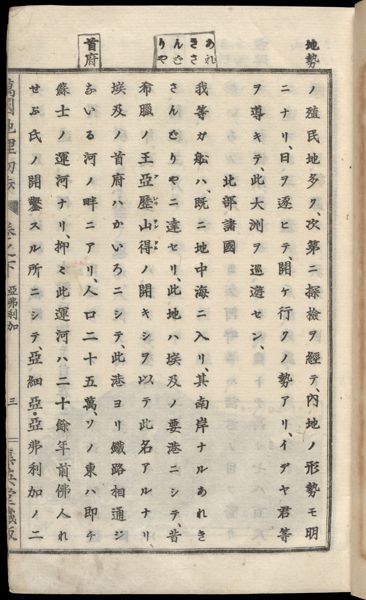 地勢
ノ殖民地多ク、次第ニ探檢ヲ經テ、內地ノ形勢モ明
ニナリ、日ヲ逐ヒテ、開ケ行クノ勢アリ、イデヤ君等
ヲ導キテ、此大洲ヲ巡遊セン、
北部諸國
あれ
きさ
んど
りや
我等ガ船ハ、既ニ地中海ニ入リ、其南岸ナルあれき
さんどりやニ達セリ、此地ハ埃及ノ要港ニシテ、昔
希臘ノ王亞歷山得ノ開キシヲ以テ此名アルナリ
首府
埃及ノ首府ハかいろニシテ、此港ヨリ鐵路相通ジ
ないる河ノ畔ニアリ、人口二十五萬ソノ東ハ即チ
蘇士ノ運河ナリ、抑々此運河ハ二十餘年前、佛人れ
せぷ氏ノ開鑿スル所ニシテ、亞細亞・亞弗利加ノ二
萬國地理初步 卷之下 亞弗利加 三 集英堂藏版